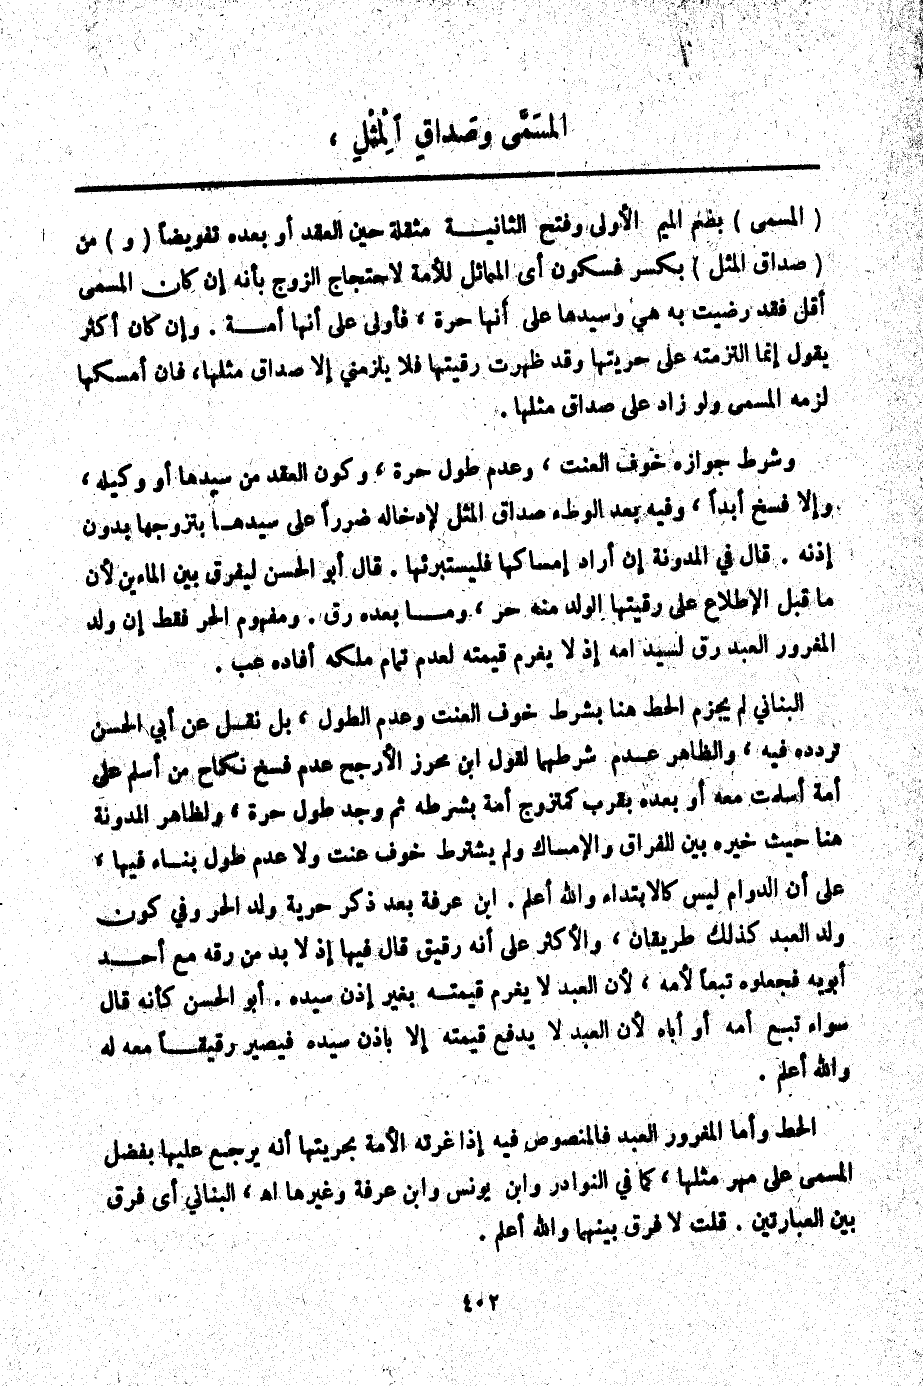 المسَمَّى وصداقِ ٱلْمِثْلِ ،
( المسمى ) بضم الميم الأولى وفتح الثانيـــة مثقلة حين العقد أو بعده تفويضاً ( و ) من
( صداق المثل ) بكسر فسكون أى المماثل للأمة لاحتجاج الزوج بأنه إن كان المسمى
أقل فقد رضيت به هي وسيدها على أنها حرة ، فأولى على أنها أمـــة . وإن كان أكثر
يقول إنما التزمته على حريتها وقد ظهرت رقيتها فلا يلزمني إلا صداق مثلها، فان أمسكها
لزمه المسمى ولو زاد على صداق مثلها .
وشرط جوازه خوف العنت ، وعدم طول حرة ، وكون العقد من سيدها أو وكيله ،
وإلا فسخ أبداً ، وفيه بعد الوطء صداق المثل لإدخاله ضرراً على سيدهــا بتزوجها بدون
إذنه . قال في المدونة إن أراد إمساكها فليستبرئها . قال أبو الحسن ليفرق بين الماءين لأن
ما قبل الإطلاع على رقيتها الولد منه حر ، ومـــا بعده رق . ومفهوم الحر فقط إن ولد
المغرور العبد رق لسيد امه إذ لا يغرم قيمته لعدم تمام ملكه أفاده عب .
البناني لم يجزم الحط هنا بشرط خوف العنت وعدم الطول ، بل نقــل عن أبي الحسن
تردده فيه ، والظاهر عــدم شرطهما لقول ابن محرز الأرجح عدم فسخ نكاح من أسلم على
أمة أسلمت معه أو بعده بقرب كمتزوج أمة بشرطه ثم وجد طول حرة ، ولظاهر المدونة
هنا حيث خيره بين الفراق والإمساك ولم يشترط خوف عنت ولا عدم طول بنــاء فيها ،
على أن الدوام ليس كالابتداء والله أعلم . ابن عرفة بعد ذكر حرية ولد الحر وفي كون
ولد العبد كذلك طريقان ، والأكثر على أنه رقيق قال فيها إذ لا بد من رقه مع أحـــد
أبويه فجعلوه تبعاً لأمه ، لأن العبد لا يغرم قيمتــه بغير إذن سيده . أبو الحسن كأنه قال
سواء تبــع أمه أو أباه لأن العبد لا يدفع قيمته إلا باذن سيده فيصير رقيقـــاً معه له
والله أعلم .
الحط وأما المغرور العبد فالمنصوص فيه إذا غرته الأمة بحريتها أنه يرجــع عليها بفضل
المسمى على مهر مثلها ، كما في النوادر وابن يونس وابن عرفة وغيرها اه ، البناني أى فرق
بين العبارتين . قلت لا فرق بينهما والله أعلم .
٤٠٢